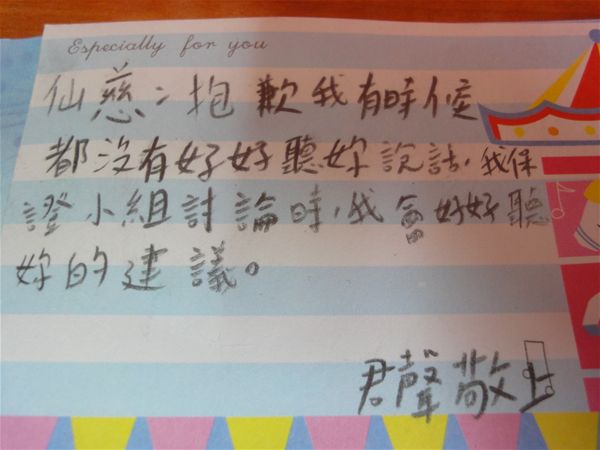 Especially for you
仙慈：抱歉我有時候
都沒有好好聽妳說話，我保
證小組討論時，我會好好聽
妳的建議。
君聲敬上